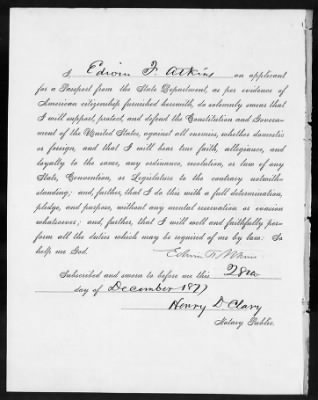 I Edwin F. Atkins an applicant
for a Passport from the State Department, as per evidence of
American citizenship furnished herewith, do solemnly swear that
I will support, protect, and defend the Constitution and Govern-
ment of the United States, against all enemies, whether domestic
or foreign, and that I will bear true faith, allegiance, and
loyalty to the same, any ordinance, resolution, or law of any
State, Convention, or Legislature to the contrary notwith-
standing; and, further, that I do this with a full determination,
pledge, and purpose, without any mental reservation or evasion
whatsoever; and, further, that I will well and faithfully per-
form all the duties which may be required of me by law: So
help me God.
Edwin F. Atkins
Subscribed and sworn to before me this 28th
day of December 1877
Henry D Clary
Notary Public.